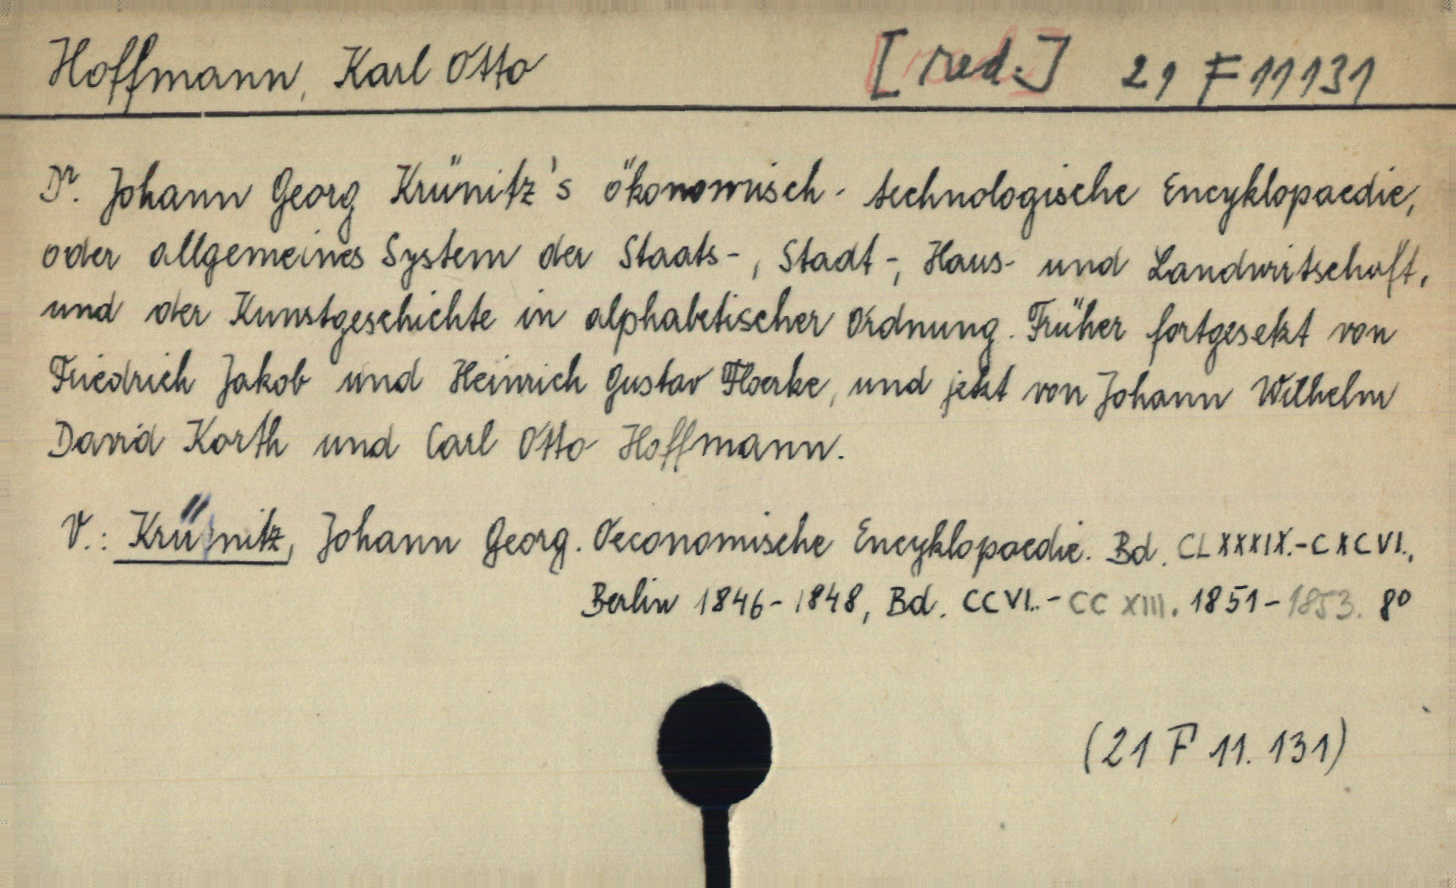 Hoffmann, Karl Otto [red.] 21 F 11131
Dr. Johann Georg Krünitz's ökonomisch-technologische Encyklopaedie,
oder allgemeines System der Staats-, Stadt-, Haus- und Landwirtschaft,
und der Kunstgeschichte in alphabetischer Ordnung. Früher fortgesetzt von
Friedrich Jakob und Heinrich Gustav Floerke, und jetzt von Johann Wilhelm
David Korth und Carl Otto Hoffmann.
V.: Krünitz, Johann Georg. Oeconomische Encyklopaedie. Bd. CLXXXIX.-CXCVI.,
Berlin 1846-1848, Bd. CCVI.-CCXIII. 1851-1853. 8°
(21 F 11. 131)